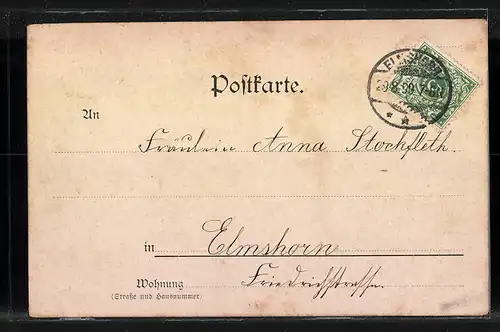 Postkarte.
ELMSHORN
An
Fräulein Anna Stockfleth.
in Elmshorn
Wohnung Friedrichstrasse.
(Straße und Hausnummer)